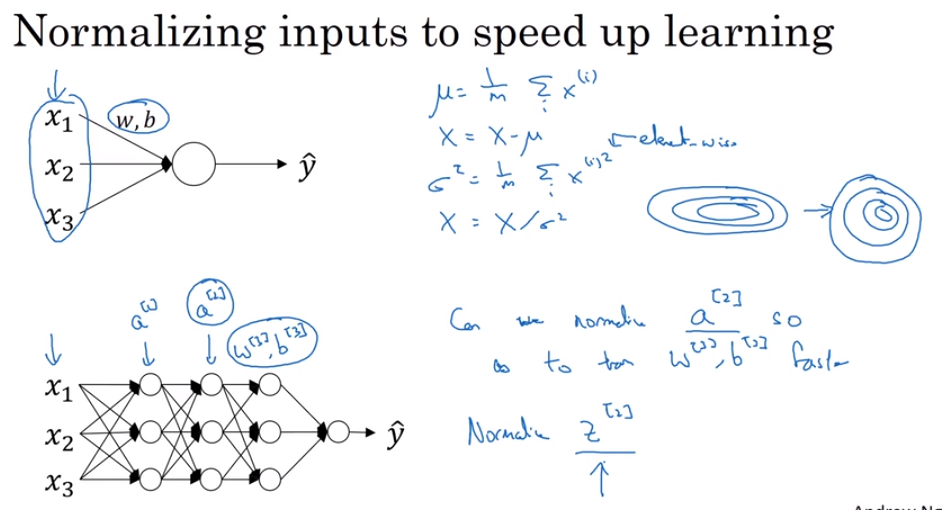 Normalizing inputs to speed up learning
x₁
w, b
x₂
ŷ
x₃
μ = 1/m Σᵢ x⁽ⁱ⁾
X = X - μ
σ² = 1/m Σᵢ x⁽ⁱ⁾² ← element-wise
X = X/σ²
a^[1]
a^[2]
w^[3], b^[3]
x₁
x₂
ŷ
x₃
Can we normalize a^[2] so
as to train w^[3], b^[3] faster
Normalize z^[2]